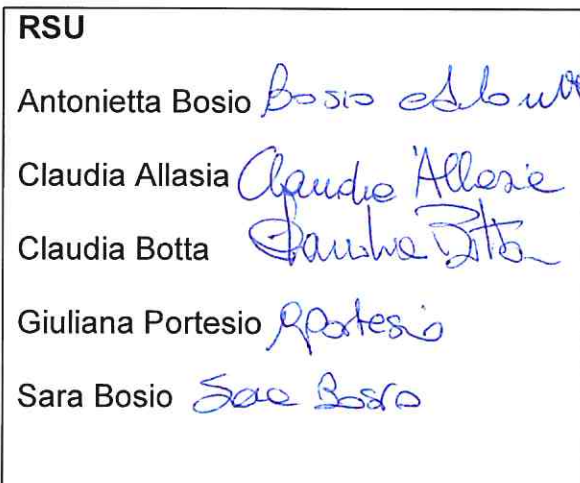 RSU
Antonietta Bosio Bosio
Claudia Allasia Claudia Allasia
Claudia Botta Claudia Botta
Giuliana Portesio GPortesio
Sara Bosio Sara Bosio